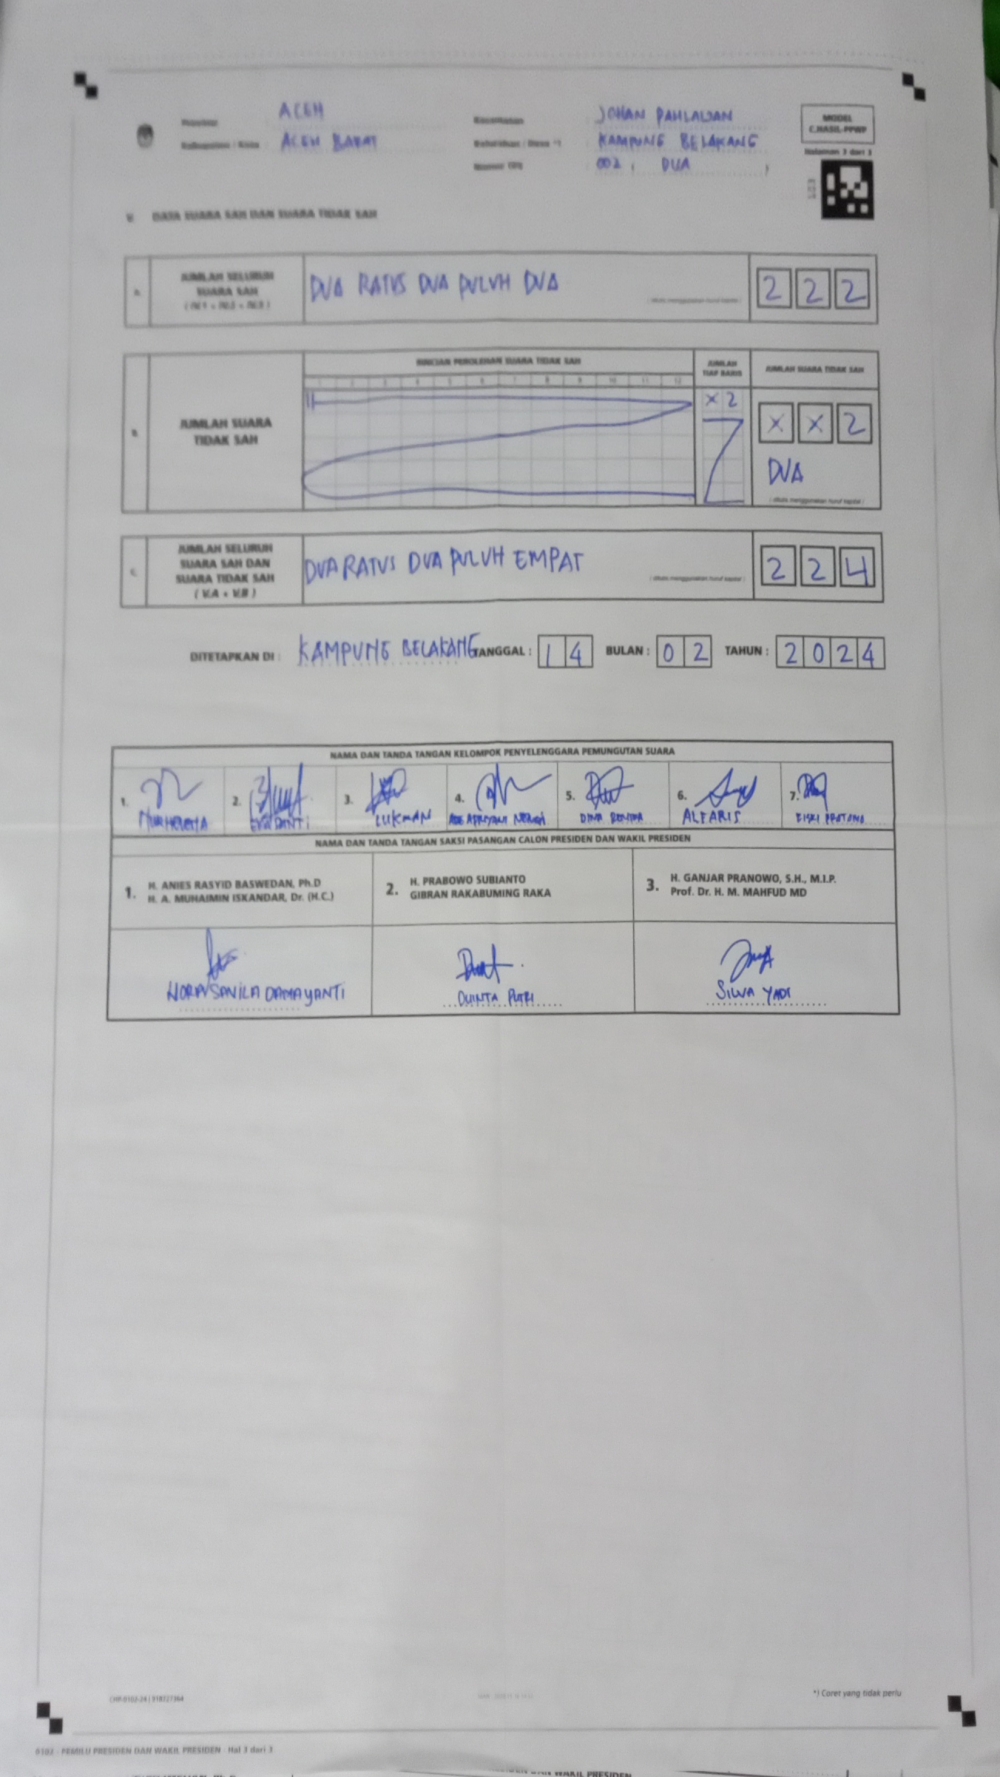 Provinsi : ACEH
Kabupaten / Kota : ACEH BARAT
Kecamatan : JOHAN PAHLAWAN
Kelurahan / Desa *) : KAMPUNG BELAKANG
Nomor TPS : 002, DUA
MODEL
C.HASIL-PPWP
Halaman 3 dari 3
V. DATA SUARA SAH DAN SUARA TIDAK SAH
A. JUMLAH SELURUH
SUARA SAH
( IV.1 + IV.2 + IV.3 )
DUA RATUS DUA PULUH DUA
( ditulis menggunakan huruf kapital )
2 2 2
RINCIAN PEROLEHAN SUARA TIDAK SAH
1 2 3 4 5 6 7 8 9 10 11 12
JUMLAH
TIAP BARIS
JUMLAH SUARA TIDAK SAH
B. JUMLAH SUARA
TIDAK SAH
X 2
X X 2
DUA
( ditulis menggunakan huruf kapital )
C. JUMLAH SELURUH
SUARA SAH DAN
SUARA TIDAK SAH
( V.A + V.B )
DUA RATUS DUA PULUH EMPAT
( ditulis menggunakan huruf kapital )
2 2 4
DITETAPKAN DI : KAMPUNG BELAKANG TANGGAL : 1 4 BULAN : 0 2 TAHUN : 2 0 2 4
NAMA DAN TANDA TANGAN KELOMPOK PENYELENGGARA PEMUNGUTAN SUARA
1. 2. 3. 4. 5. 6. 7.
LUKMAN ALFARIS
NAMA DAN TANDA TANGAN SAKSI PASANGAN CALON PRESIDEN DAN WAKIL PRESIDEN
1. H. ANIES RASYID BASWEDAN, Ph.D
H. A. MUHAIMIN ISKANDAR, Dr. (H.C.)
2. H. PRABOWO SUBIANTO
GIBRAN RAKABUMING RAKA
3. H. GANJAR PRANOWO, S.H., M.I.P.
Prof. Dr. H. M. MAHFUD MD
DAMAYANTI
PUTRI
SILWA YADI
*) Coret yang tidak perlu
0102 - PEMILU PRESIDEN DAN WAKIL PRESIDEN - Hal 3 dari 3
DAN WAKIL PRESIDEN